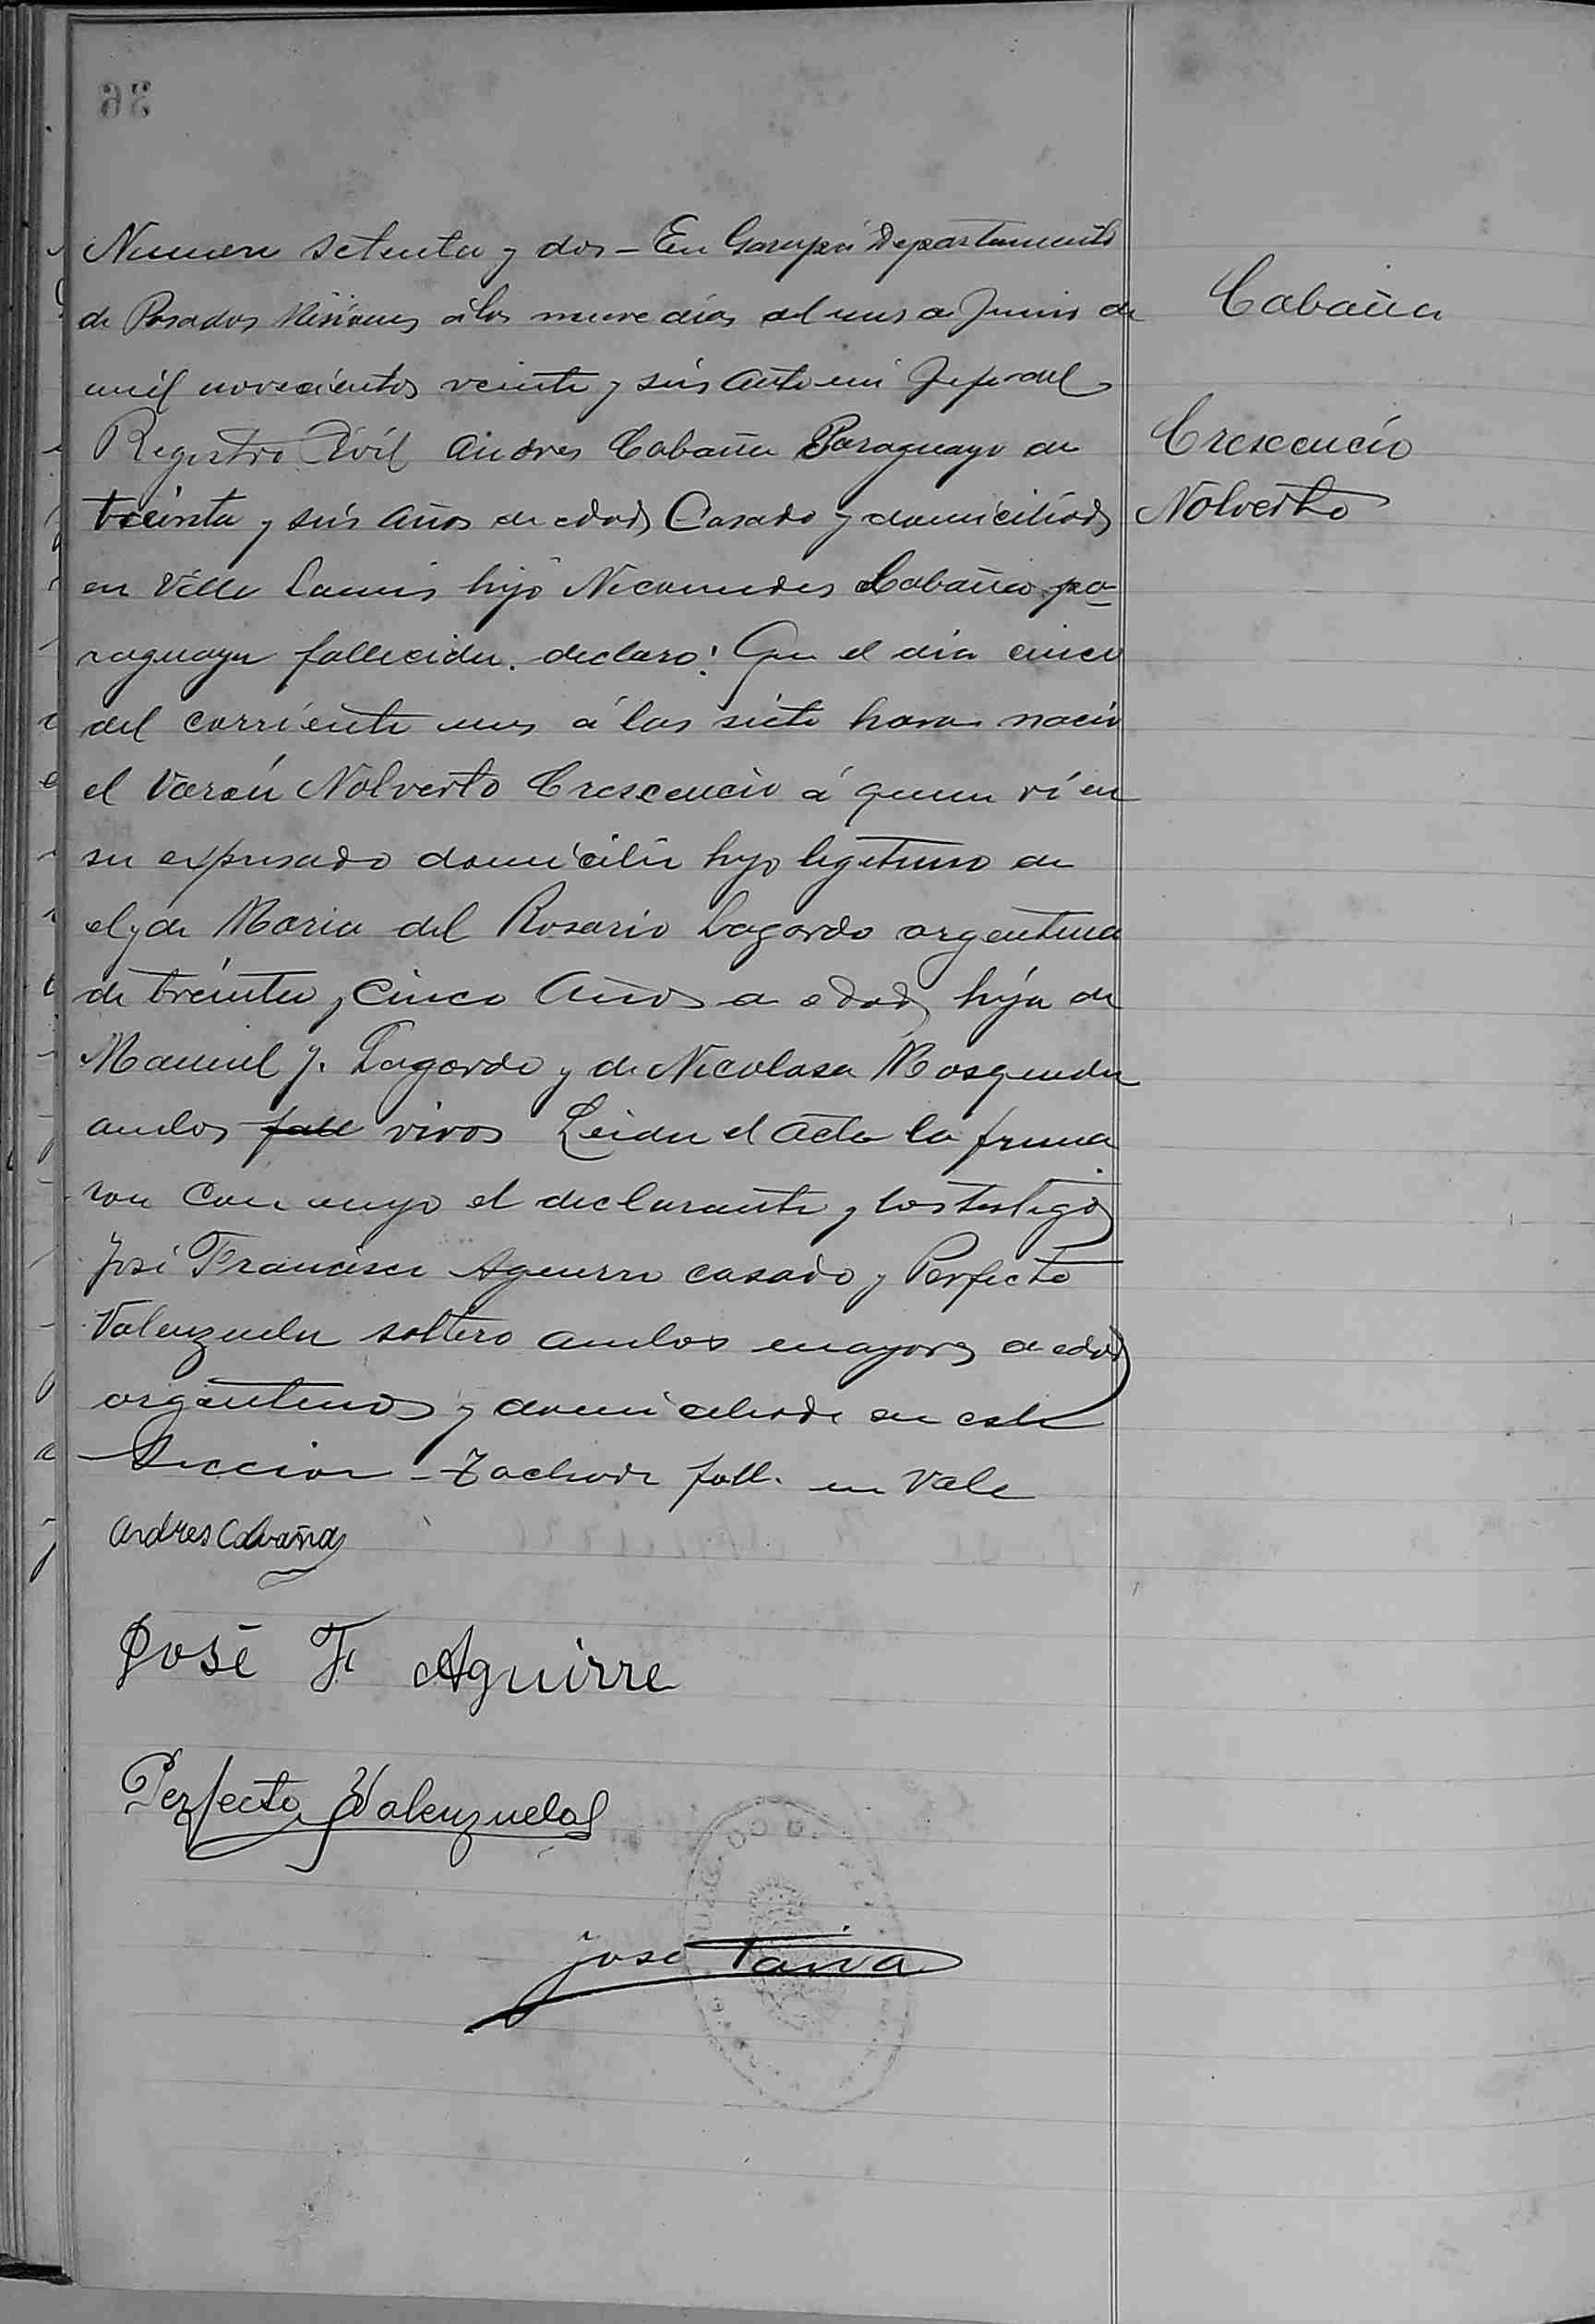 Numero setenta y dos - En Garupá Departamento
de Posadas Misiones á los nueve dias del mes de Junio de
mil novecientos veinte y seis Ante mi Jefe del
Registro Civil Andres Cabaña Paraguayo de
treinta y seis años de edad Casado y domiciliado
en Villa Lanus hijo Nicomedes Cabaña pa-
raguaya fallecida. declaro: Que el dia cinco
del corriente mes á las siete horas nacio
el Varón Nolverto Crescencio á quien ví en
su expresado domicilio hijo legitimo de
el y de Maria del Rosario Lagardo argentina
de treinta y cinco Años de edad hija de
Manuel J. Lagardo y de Nicolasa Mosqueda
ambos fall vivos Leida el Acta la firma
ron con migo el declarante y los testigos
José Francisco Aguirre casado y Perfecto
Valenzuela soltero ambos mayores de edad
argentinos y domiciliado en esta
Seccion - Tachado fall. no Vale
Andres Cabaña
José F. Aguirre
Perfecto Valenzuela
José Paiva
Cabaña
Crescencio
Nolverto
36